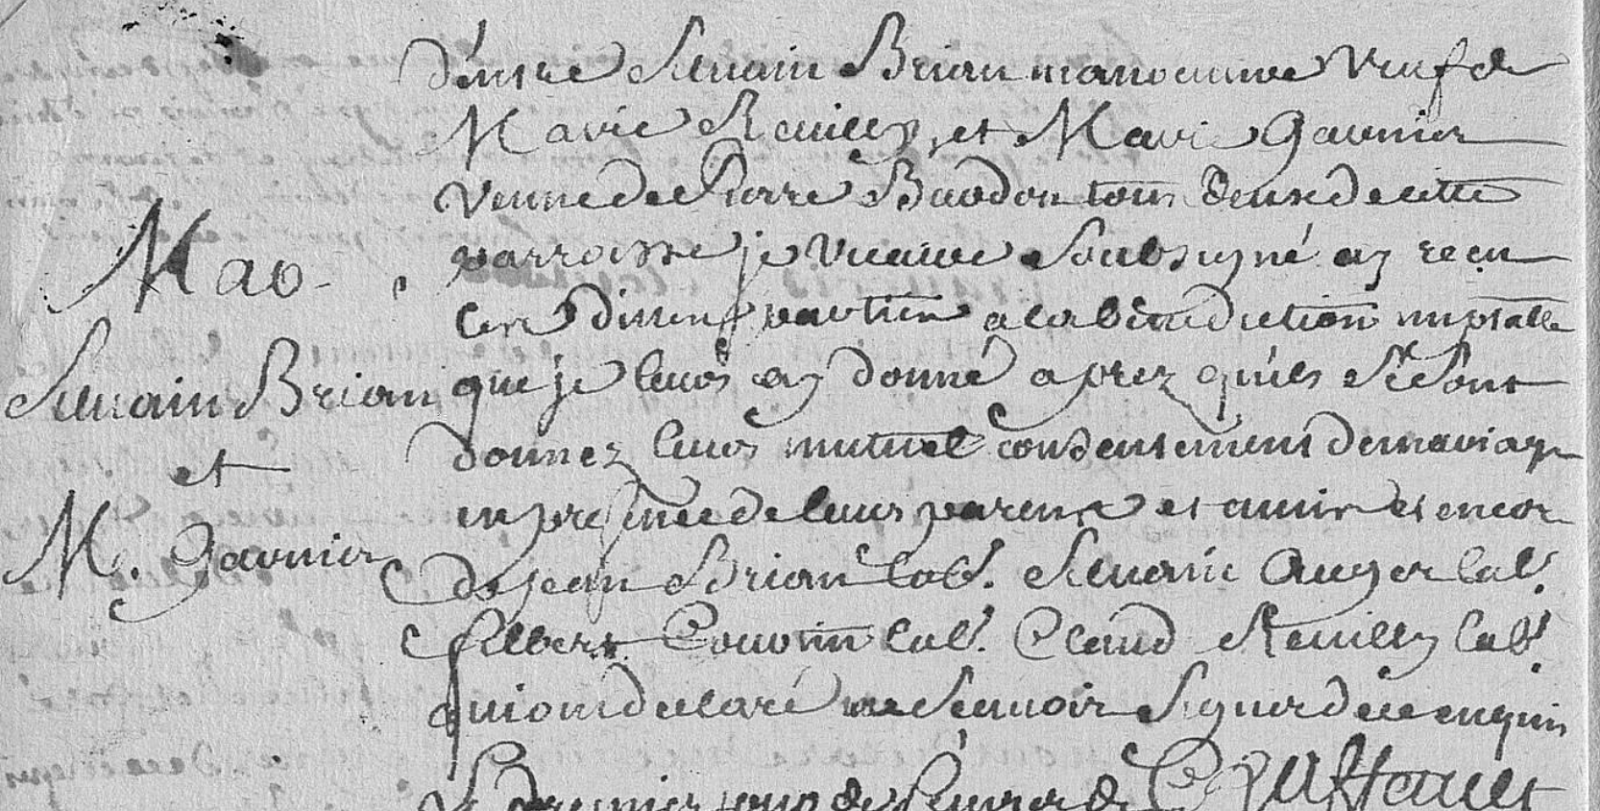 Mar
Silvain Brian
et
M. Garnier
d'entre Silvain Brian manoeuvre veuf de
Marie Reuilly, et Marie Garnier
veuve de Pierre Baudon tous deux de cette
parroisse je vicaire soubsigné ay reçu
la benediction nuptalle
que je leurs ay donné aprez qu'ils se sont
donnez leurs mutuel consentement de mariage
en presence de leurs parens et amis et encor
de jean Brian lab. Silvain Auger lab.
filbert lab. Claud Reuilly lab.
qui ont declaré ne scavoir signer de ce enquis
le premier jour de fevrier